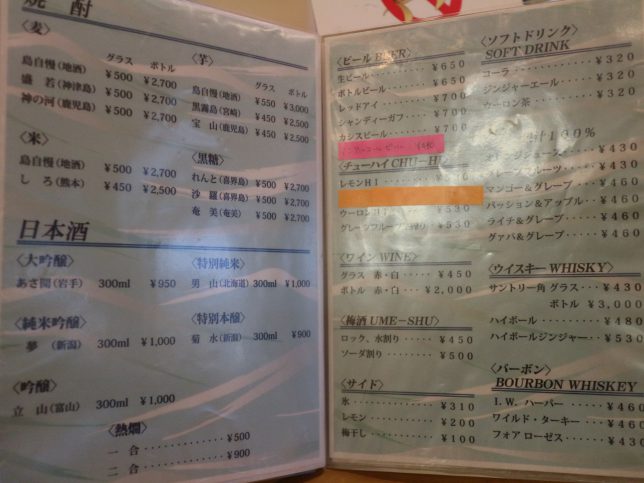 焼 酎
〈麦〉 グラス ボトル
島自慢(地酒) ¥500 ¥2,700
盛 若(神津島) ¥500 ¥2,700
神の河(鹿児島) ¥500 ¥2,700
〈芋〉 グラス ボトル
島自慢(地酒) ¥550 ¥3,000
黒霧島(宮崎) ¥450 ¥2,500
宝 山(鹿児島) ¥450 ¥2,500
〈米〉
島自慢(地酒) ¥500 ¥2,700
しろ(熊本) ¥450 ¥2,500
〈黒糖〉
れんと(喜界島) ¥500 ¥2,700
沙 羅(喜界島) ¥500 ¥2,700
奄 美(奄美) ¥500 ¥2,700
日本酒
〈大吟醸〉
あさ開(岩手) 300ml ¥950
〈特別純米〉
男 山(北海道) 300ml ¥1,000
〈純米吟醸〉
夢 (新潟) 300ml ¥1,000
〈特別本醸〉
菊 水(新潟) 300ml ¥900
〈吟醸〉
立 山(富山) 300ml ¥1,000
〈熱燗〉
一 合 ¥500
二 合 ¥900
〈ビール BEER〉
生ビール ¥650
ボトルビール ¥650
レッドアイ ¥700
シャンディーガフ ¥700
カシスビール ¥700
〈チューハイ CHU-HI
レモンHI
ウーロンHI ¥530
グレープフルーツ ¥530
〈ワイン WINE〉
グラス 赤・白 ¥450
ボトル 赤・白 ¥2,000
〈梅酒 UME-SHU〉
ロック、水割り ¥450
ソーダ割り ¥500
〈サイド〉
氷 ¥310
レモン ¥200
梅干し ¥100
〈ソフトドリンク〉
SOFT DRINK
コーラ ¥320
ジンジャーエール ¥320
ウーロン茶 ¥320
100%
ジュース ¥430
フルーツ ¥430
マンゴー&グレープ ¥460
パッション&アップル ¥460
ライチ&グレープ ¥460
グァバ&グレープ ¥460
〈ウイスキー WHISKY〉
サントリー角 グラス ¥430
ボトル ¥3,000
ハイボール ¥480
ハイボールジンジャー ¥530
〈バーボン〉
BOURBON WHISKEY
I.W. ハーパー ¥460
ワイルド・ターキー ¥460
フォア ローゼス ¥430